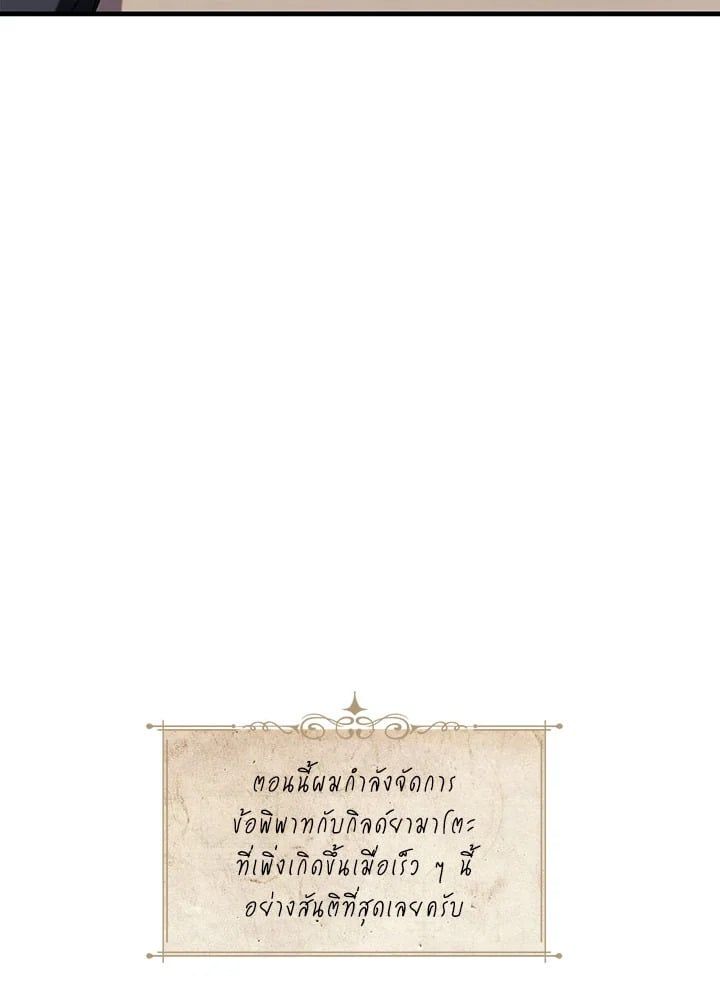 ตอนนี้ผมกำลังจัดการ
ข้อพิพาทกับกิลด์ยามาโตะ
ที่เพิ่งเกิดขึ้นเมื่อเร็ว ๆ นี้
อย่างสันติที่สุดเลยครับ